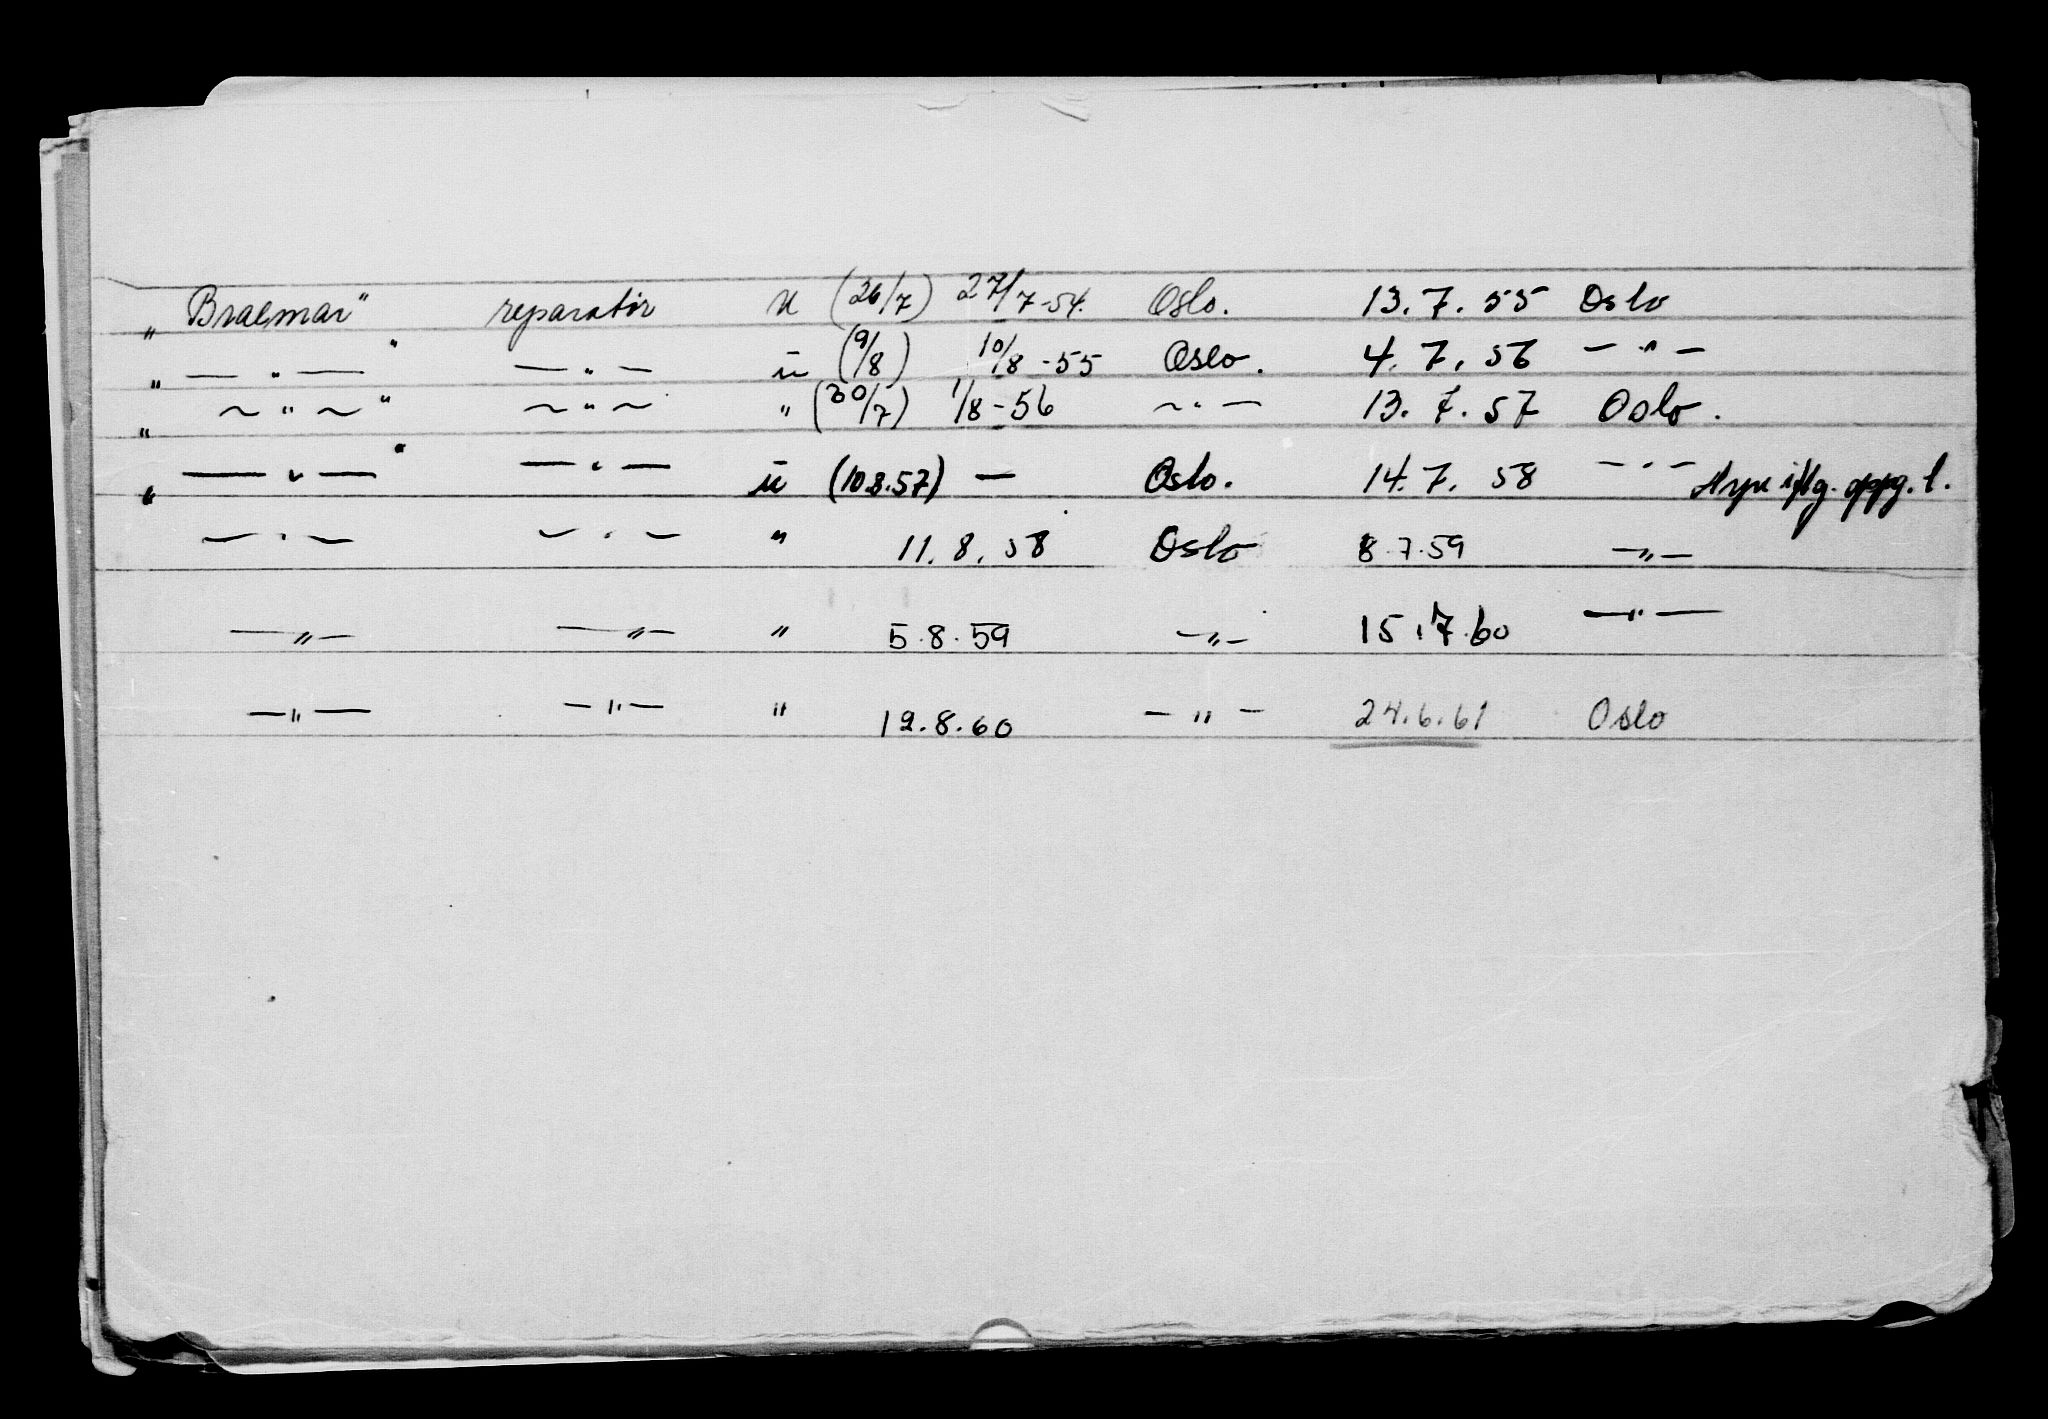 „Braemar" reparatör u (26/7) 27/7-54. Oslo. 13.7.55 Oslo
„ — „ — " — „ — u (9/8) 10/8-55 Oslo. 4.7.56 — " —
„ ~ " ~ " ~ " ~ " (30/7) 1/8-56 ~ " — 13.7.57 Oslo.
„ — " — " — " — u (10.8.57) — Oslo. 14.7.58 — " — oppg. l.
— " — — " — " 11.8.58 Oslo 8.7.59 — " —
— " — — " — " 5.8.59 — " — 15.7.60 — " —
— " — — " — " 12.8.60 — " — 24.6.61 Oslo